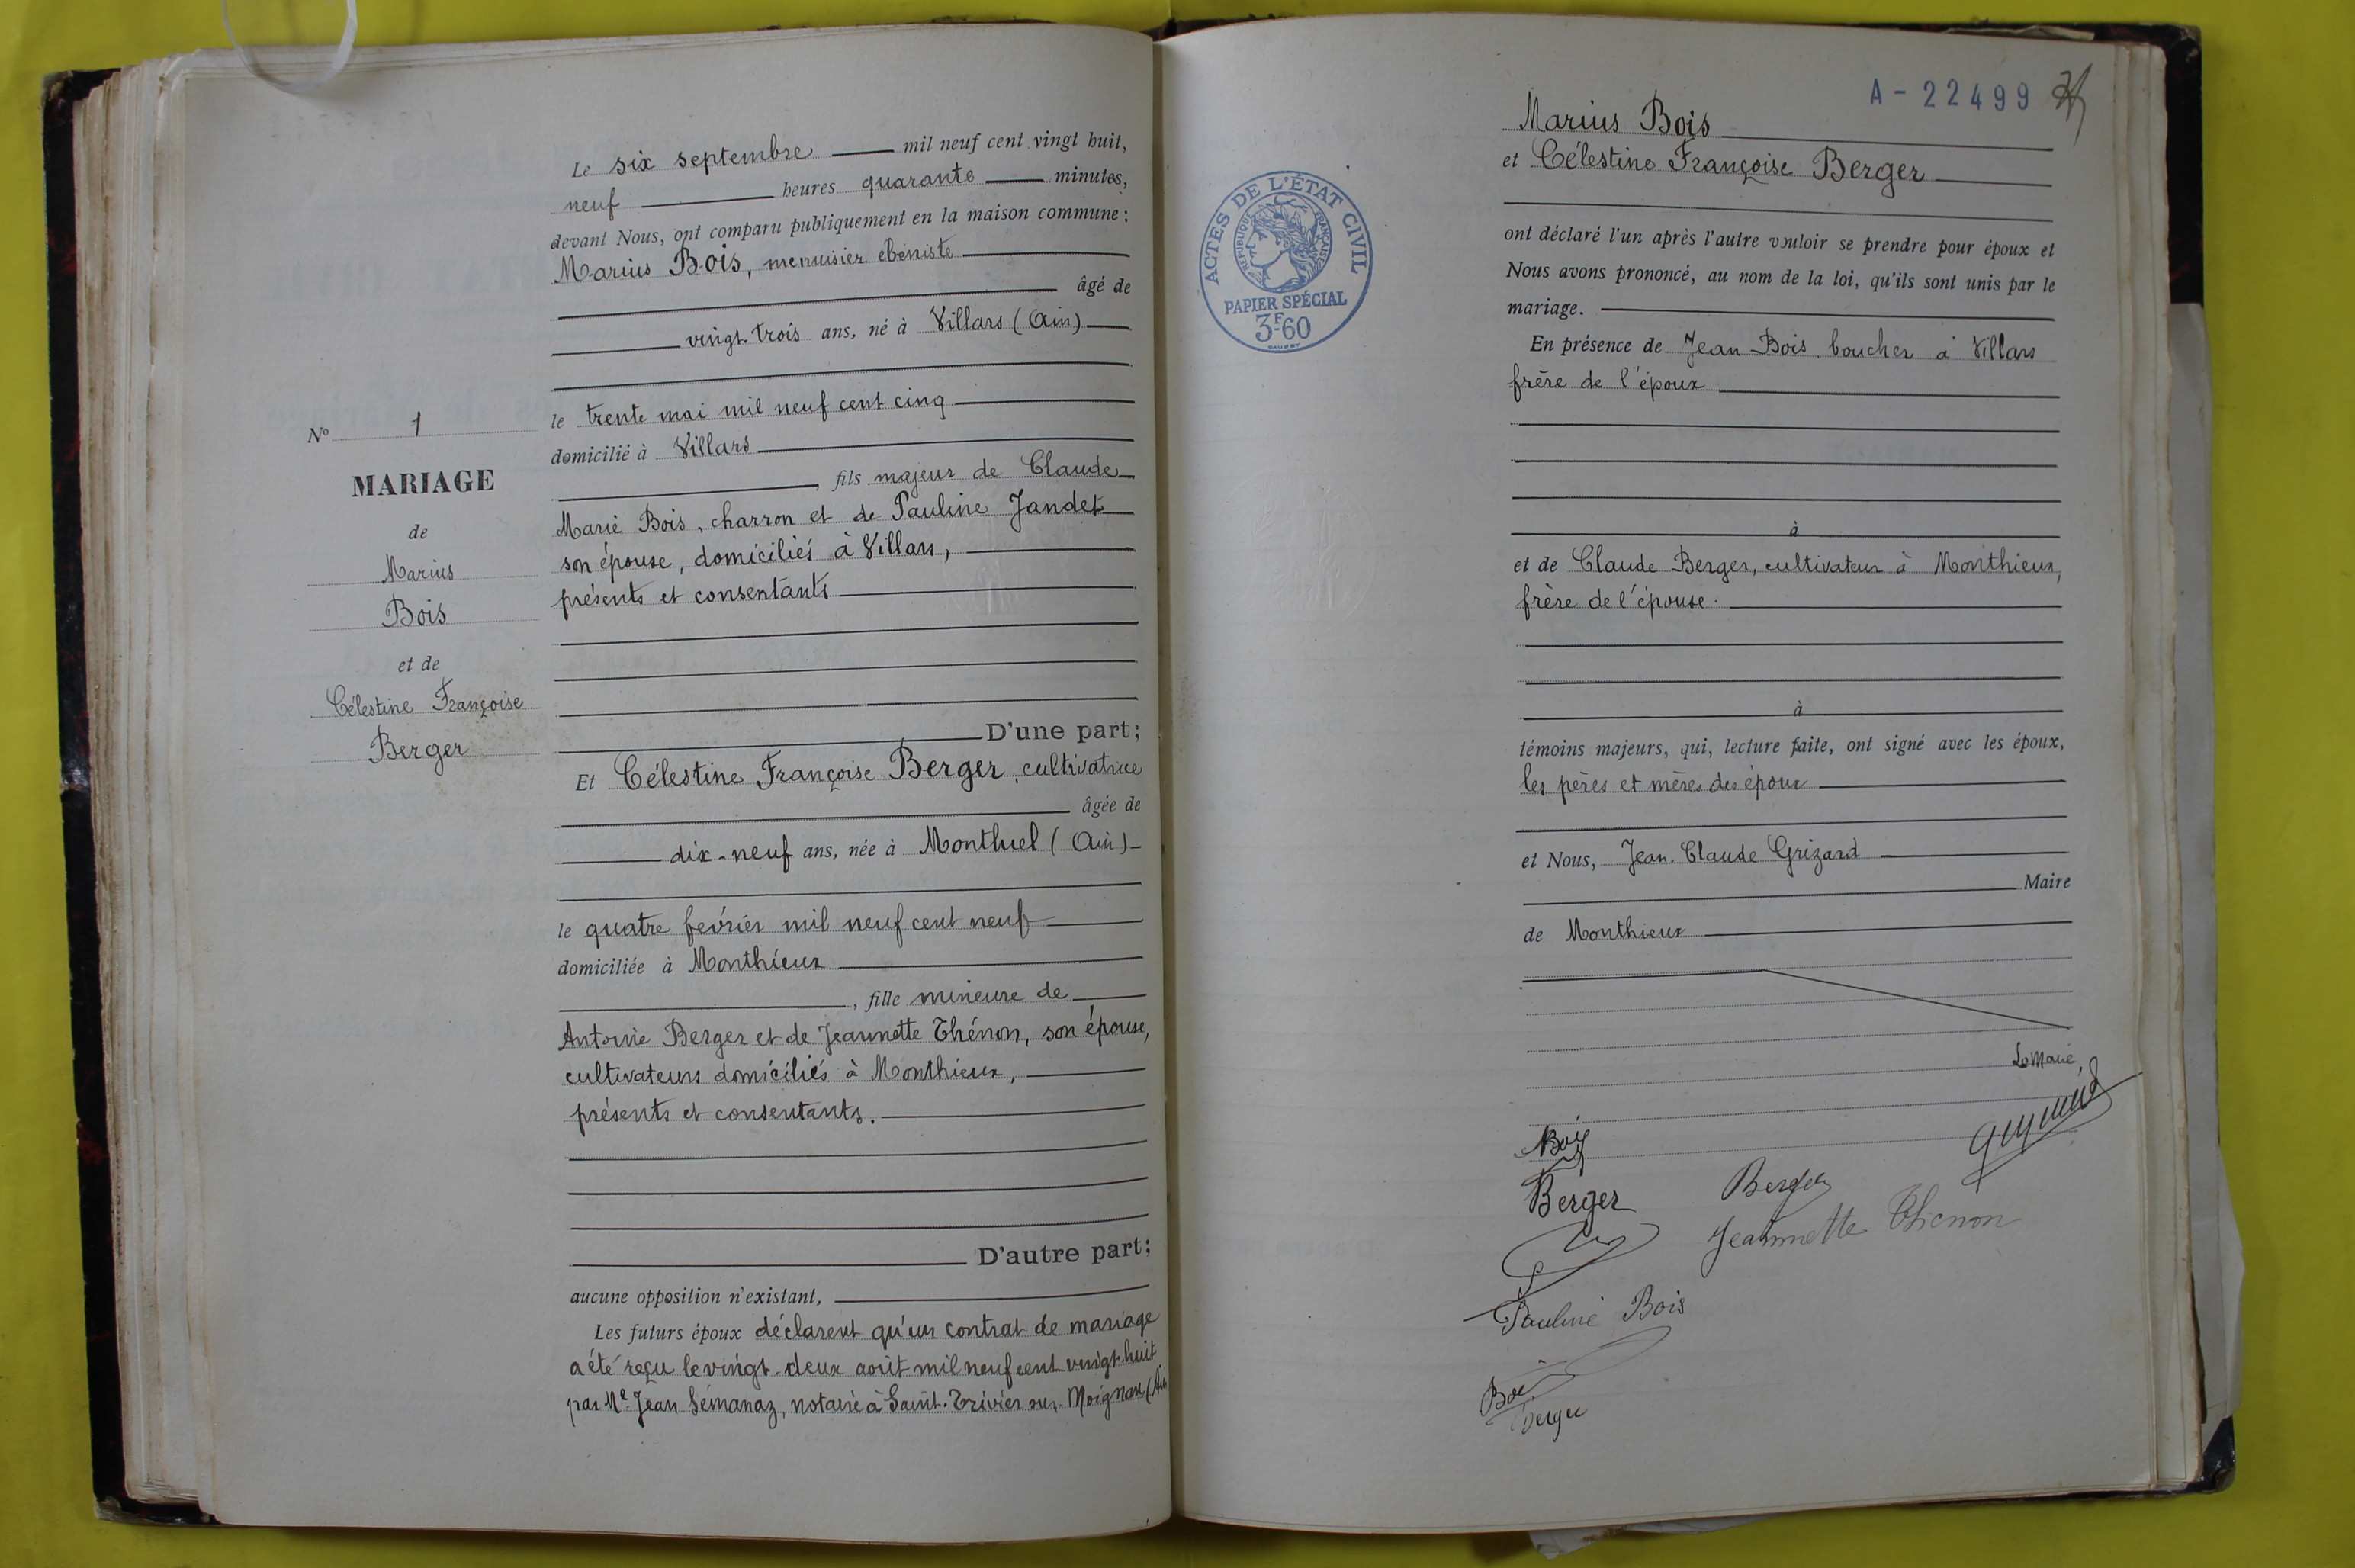 N° 1
MARIAGE
de
Marius
Bois
et de
Célestine Françoise
Berger
Le six septembre mil neuf cent vingt huit,
neuf heures quarante minutes,
devant Nous, ont comparu publiquement en la maison commune :
Marius Bois, menuisier ébéniste
âgé de
vingt-trois ans, né à Villars (Ain)
le trente mai mil neuf cent cinq
domicilié à Villars
, fils majeur de Claude
Marie Bois, charron et de Pauline Jandet
son épouse, domiciliés à Villars,
présents et consentants
D'une part;
Et Célestine Françoise Berger, cultivatrice
âgée de
dix-neuf ans, née à Montluel (Ain)
le quatre février mil neuf cent neuf
domiciliée à Monthieux
, fille mineure de
Antoine Berger et de Jeannette Thénon, son épouse,
cultivateurs domiciliés à Monthieux,
présents et consentants.
D'autre part;
aucune opposition n'existant,
Les futurs époux déclarent qu'un contrat de mariage
a été reçu le vingt-deux août mil neuf cent vingt-huit
par Me Jean Sémanaz, notaire à Saint-Trivier sur Moignans (Ain
ACTES DE L'ÉTAT CIVIL
RÉPUBLIQUE FRANÇAISE
PAPIER SPÉCIAL
3F60
A-22499
Marius Bois
et Célestine Françoise Berger
ont déclaré l'un après l'autre vouloir se prendre pour époux et
Nous avons prononcé, au nom de la loi, qu'ils sont unis par le
mariage.
En présence de Jean Bois boucher à Villars
frère de l'époux
à
et de Claude Berger, cultivateur à Monthieux,
frère de l'épouse.
à
témoins majeurs, qui, lecture faite, ont signé avec les époux,
les pères et mères des époux
et Nous, Jean-Claude Grizard
Maire
de Monthieux
Le Maire,
Bois
Berger
Berger
Jeannette Thenon
Pauline Bois
Berger